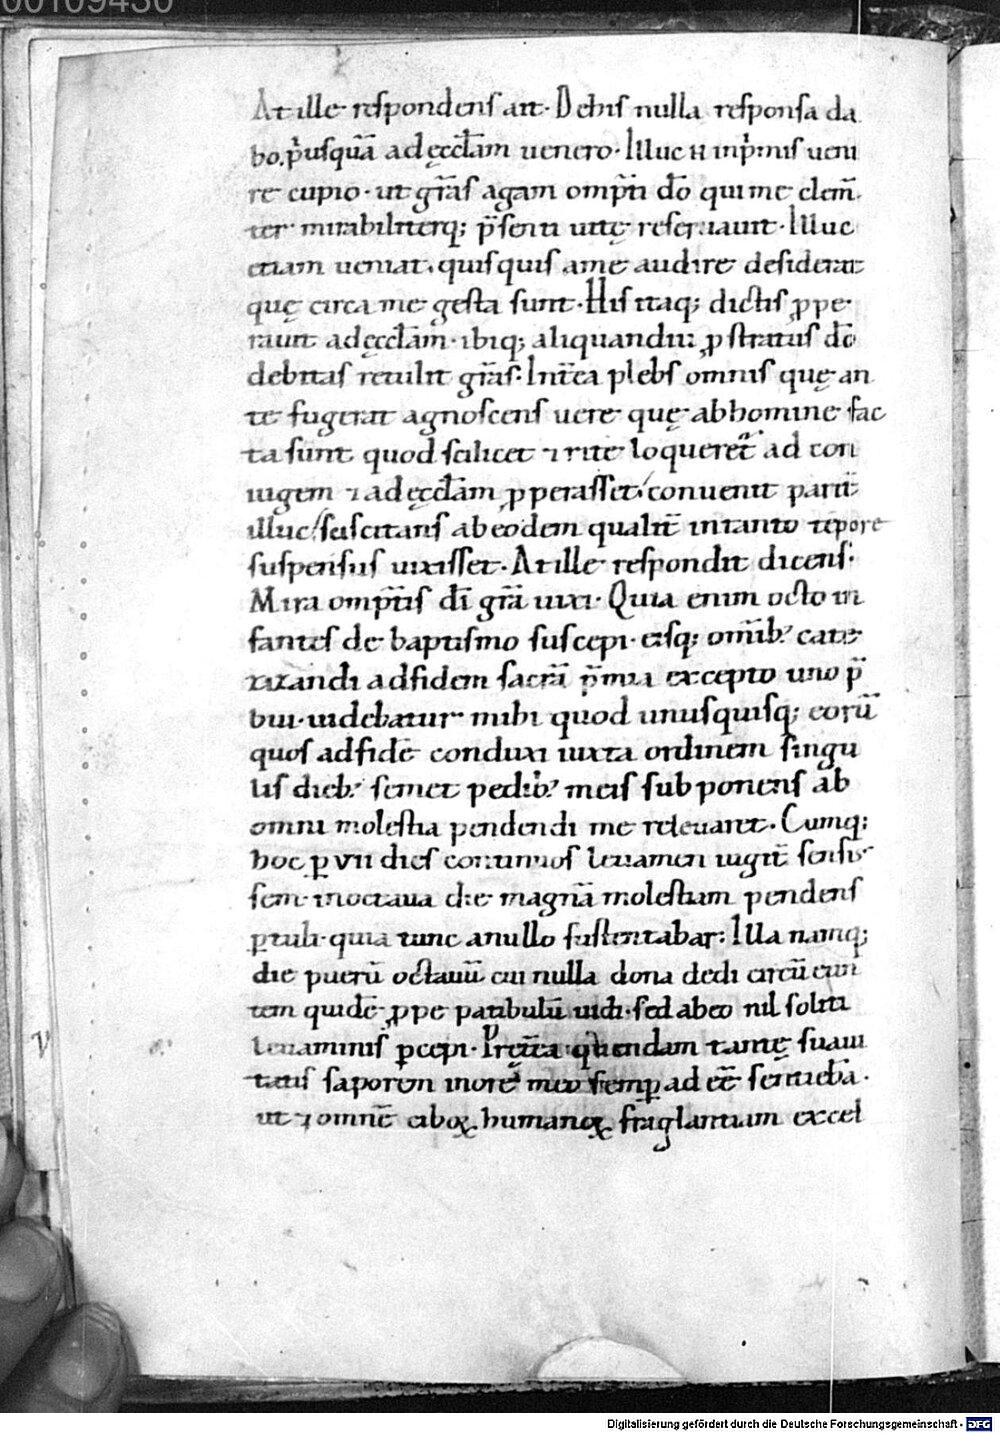 00109430
At ille respondens ait· De his nulla responsa da
bo. p̓usquā ad ęccl̄am uenero· Illuc .n. inp̓mis ueni
re cupio· ut gr̄as agam omp̄ti dō qui me clem̄
ter· mirabiliterq; p̄senti uitę reseruauit· Illuc
etiam ueniat, quisquis a me audire desiderat
quę circa me gesta sunt· His itaq; dictis ꝓpe·
rauit ad ęccl̄am· ibiq; aliquandiu ꝓstratus dō
debitas retulit gr̄as: Int̄ea plebs omnis quę an
te fugerat agnoscens uere quę ab homine fac
ta sunt quod scilicet ⁊ rite loqueret̄ ad con
iugem ⁊ ad ęccl̄am ꝓperasset· conuenit parit̄
illuc, sciscitans ab eodem qualit̄ in tanto tēpore
suspensus uixisset· At ille respondit dicens·
Mira omp̄tis dī gr̄a uixi· Quia enim octo in
fantes de baptismo suscepi· eisq; om̄ib; cate
zizandi ad fidem sacrā p̄mia excepto uno p̄
bui· uidebatur mihi quod unusquisq; eorū
quos ad fidē conduxi iuxta ordinem singu
lis dieb; semet pedib; meis subponens ab
omni molestia pendendi me releuaret. Cumq;
hoc ꝑ VII dies continuos leuamen iugit̄ sensis·
sem· in octaua die magnā molestiam pendens
ꝑtuli· quia tunc a nullo sustentabar: Illa namq;
die puerū octauū cui nulla dona dedi circū eun
tem quidē ꝓpe patibulū uidi· sed ab eo nil soliti
leuaminis ꝑcepi· Pręt̄ea quendam tantę suaui
tatis saporem in ore meo semꝑ adeē sentiebā·
ut ⁊ omnē ciboꝝ humanoꝝ fraglantiam excel
V
Digitalisierung gefördert durch die Deutsche Forschungsgemeinschaft - DFG